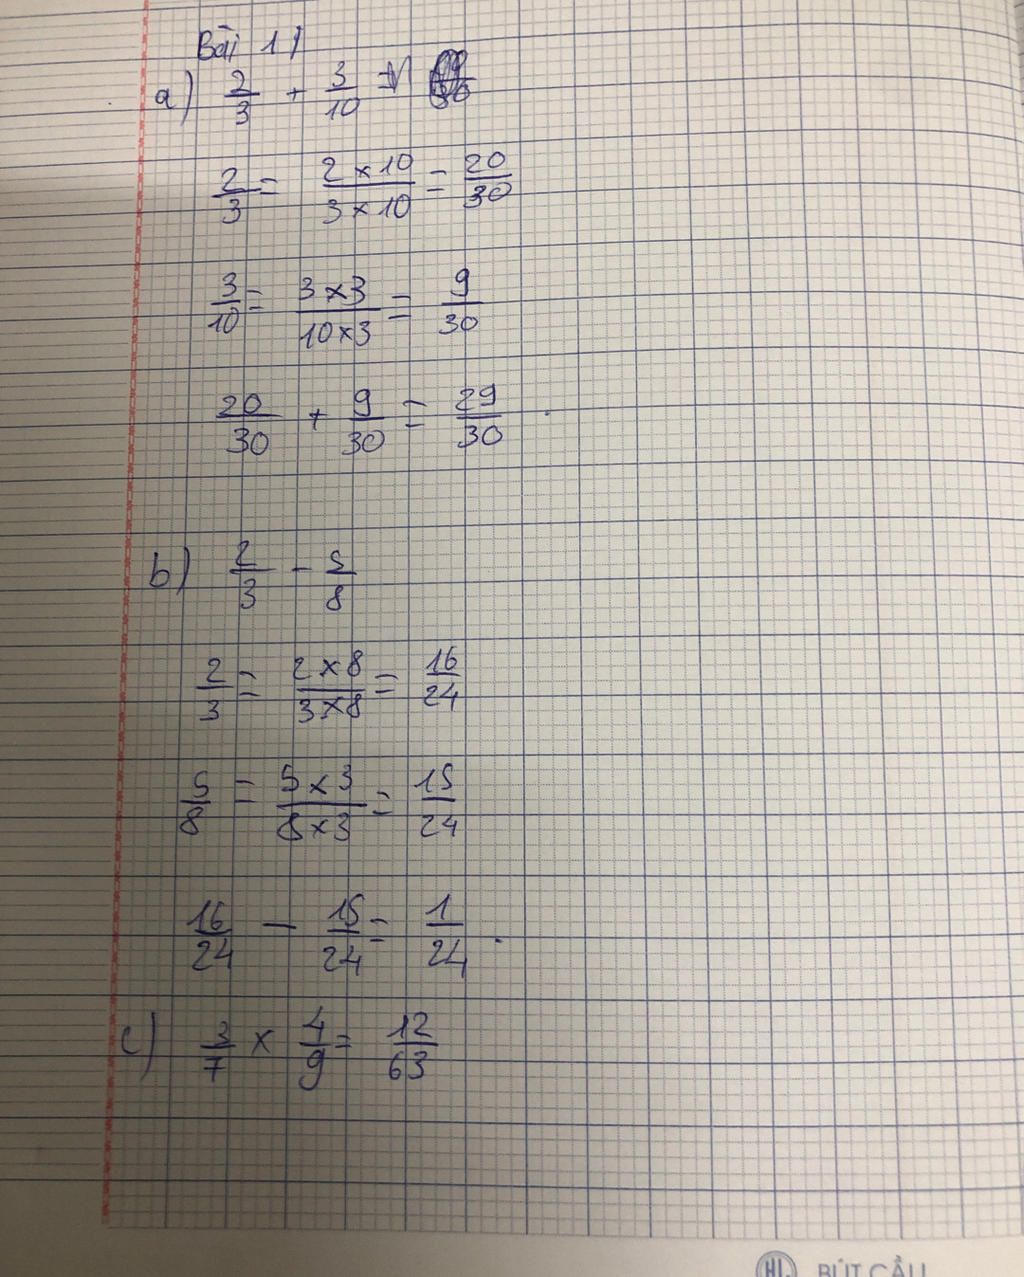 Bài 1/
a) 2/3 + 3/10 =
2/3 = 2 x 10/3 x 10 = 20/30
3/10 = 3 x 3/10 x 3 = 9/30
20/30 + 9/30 = 29/30.
b) 2/3 - 5/8
2/3 = 2 x 8/3 x 8 = 16/24
5/8 = 5 x 3/8 x 3 = 15/24
16/24 - 15/24 = 1/24.
c) 3/7 x 4/9 = 12/63
HL BÚT CẦU